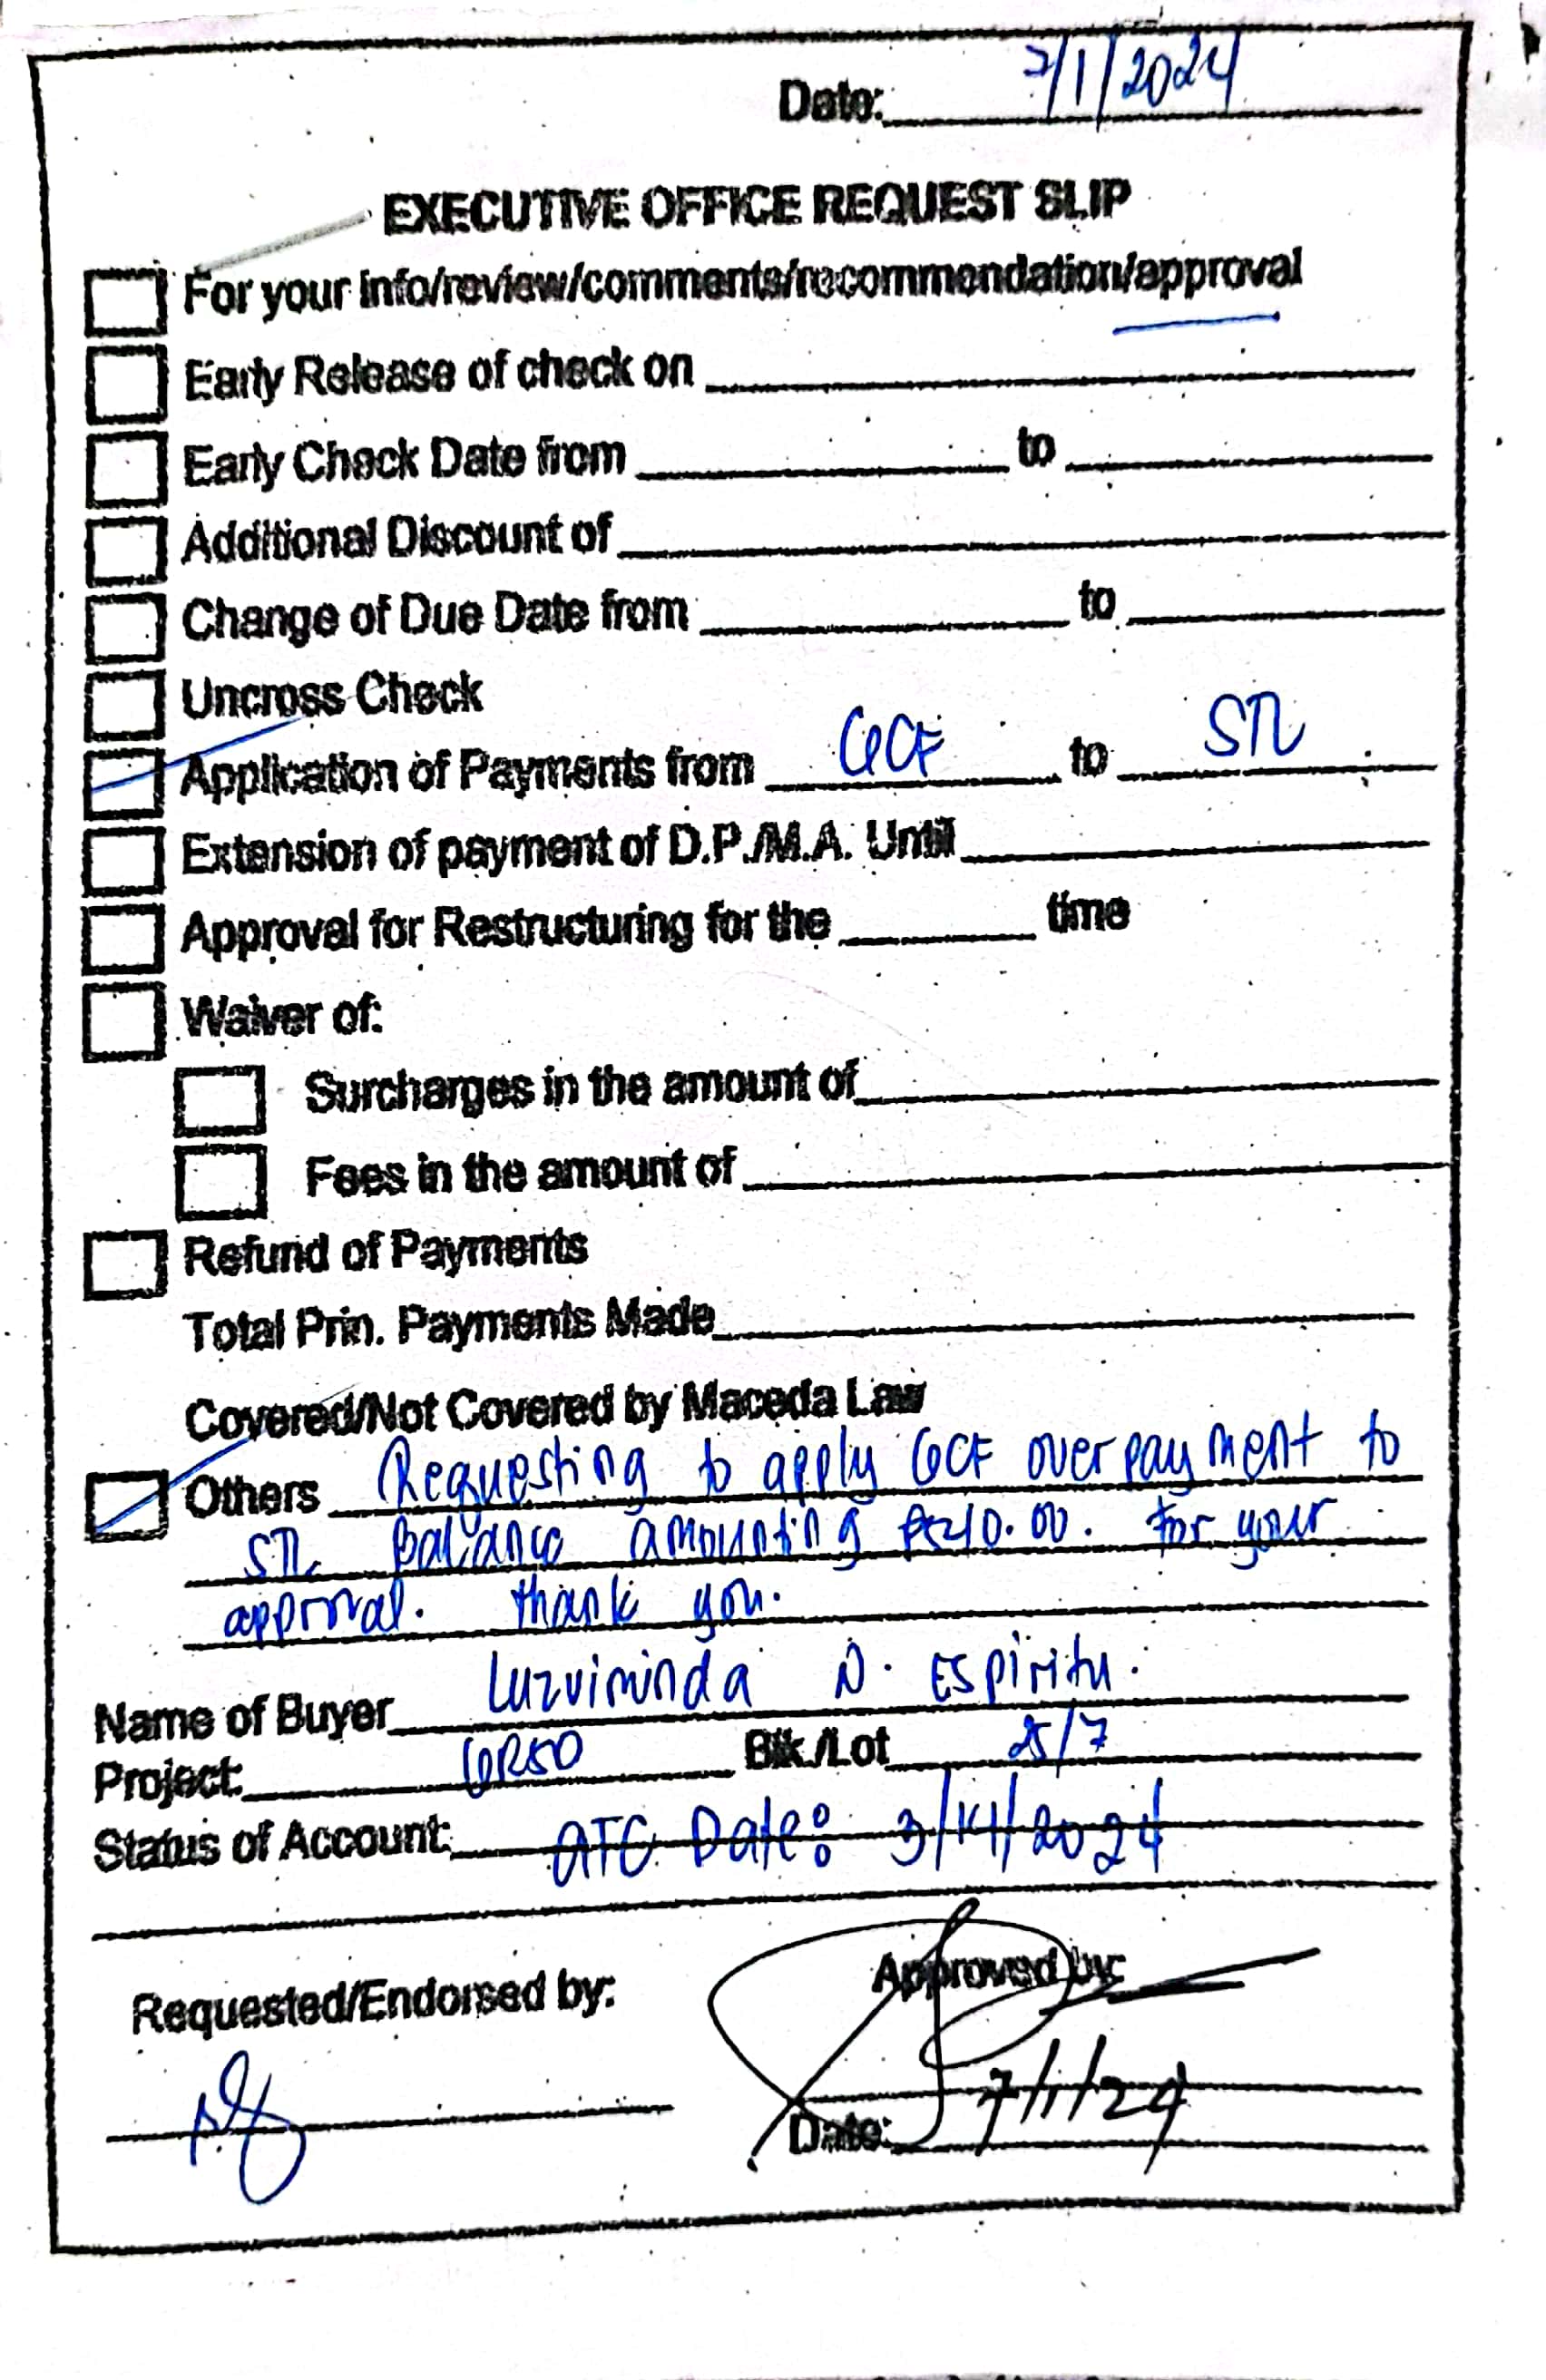 Date: 7/1/2024
EXECUTIVE OFFICE REQUEST SLIP
For your info/review/comments/recommendation/approval
Early Release of check on
Early Check Date from to
Additional Discount of
Change of Due Date from to
Uncross Check
Application of Payments from GCF to STL
Extension of payment of D.P./M.A. Until
Approval for Restructuring for the time
Waiver of:
Surcharges in the amount of
Fees in the amount of
Refund of Payments
Total Prin. Payments Made
Covered/Not Covered by Maceda Law
Others Requesting to apply GCF overpayment to
STL Balance amounting For your
approval. Thank you.
Name of Buyer Luzviminda N. Espiritu.
Project: Blk./Lot 25/7
Status of Account: ATC Date: 3/14/2024
Requested/Endorsed by: Approved by:
Date: 7/1/24